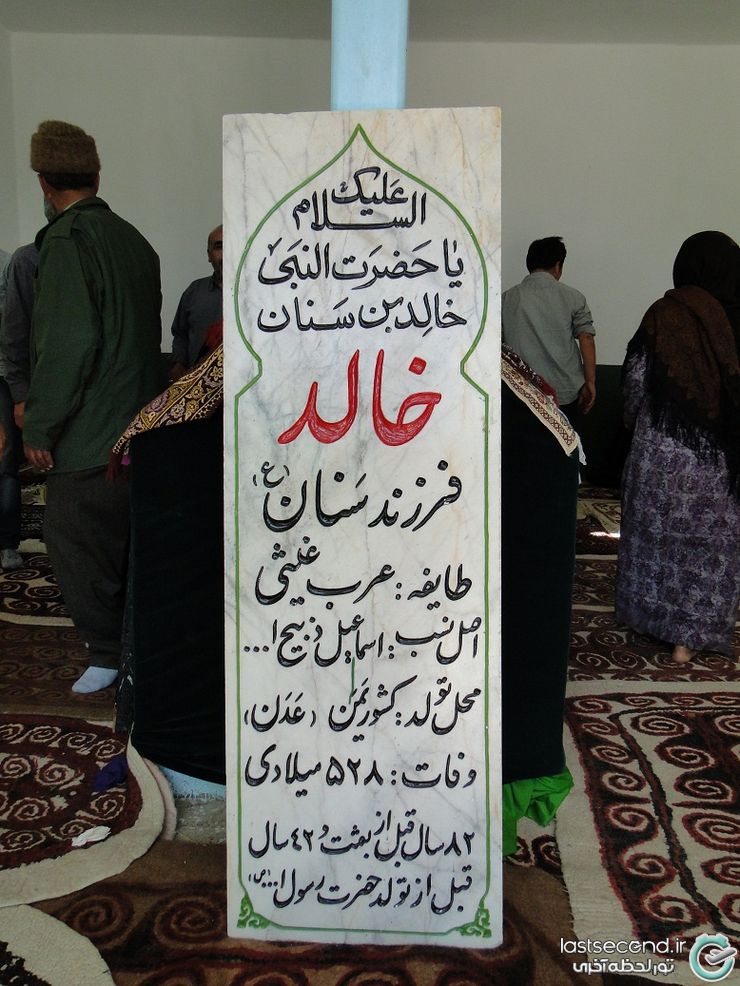 السلام علیک
یا حَضرَت النبی
خالِد بن سَنان
خالد
فرزند سَنان (ع)
طایفه : عرب غلیثی
اصل نسب : اسماعیل ذبیح ا...
محل تولد : کشور یَمن (عَدَن)
وفات : ۵۲۸ میلادی
۸۲ سال قبل از بعثت و ۴۲ سال
قبل از تولد حضرت رسول ا... (ص)
lastsecond.ir
تور لحظه آخری